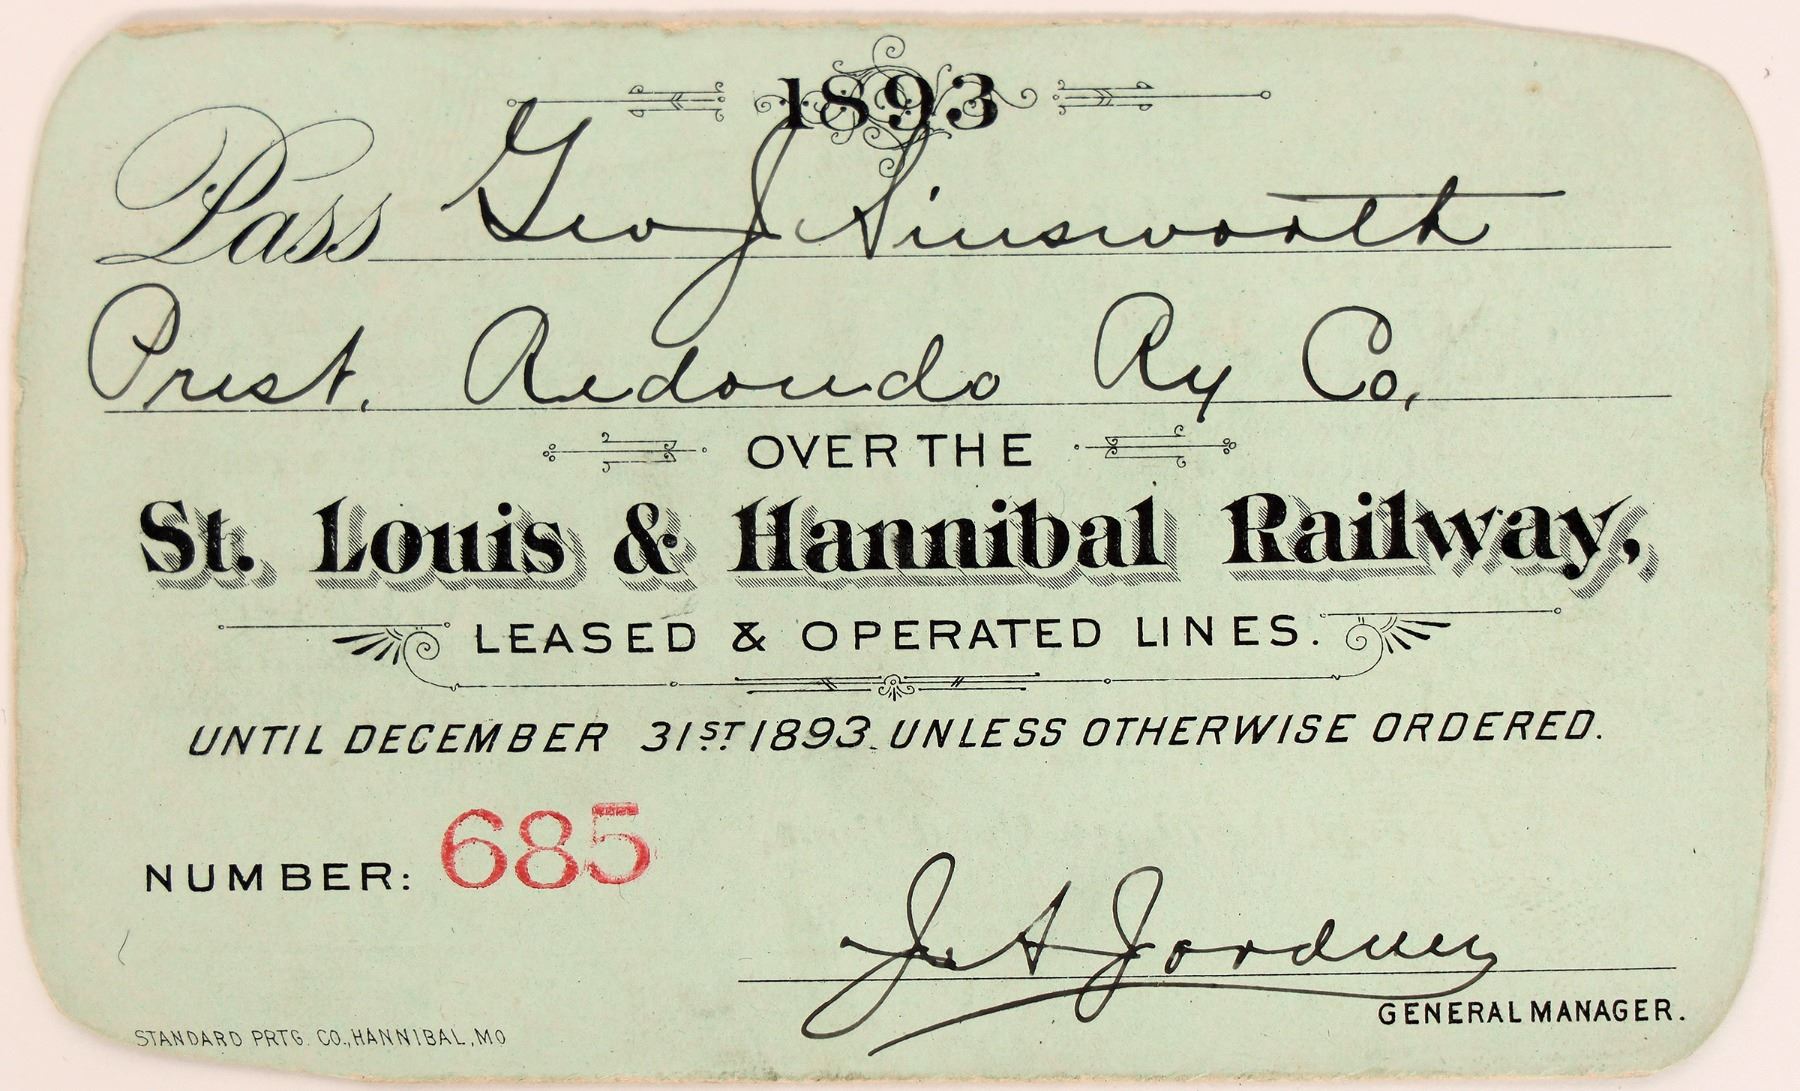 1893
Pass Geo J Ainsworth
Prest. Redondo Ry Co.
OVER THE
St. Louis & Hannibal Railway,
LEASED & OPERATED LINES.
UNTIL DECEMBER 31ST 1893. UNLESS OTHERWISE ORDERED.
NUMBER: 685
GENERAL MANAGER.
STANDARD PRTG. CO., HANNIBAL, MO